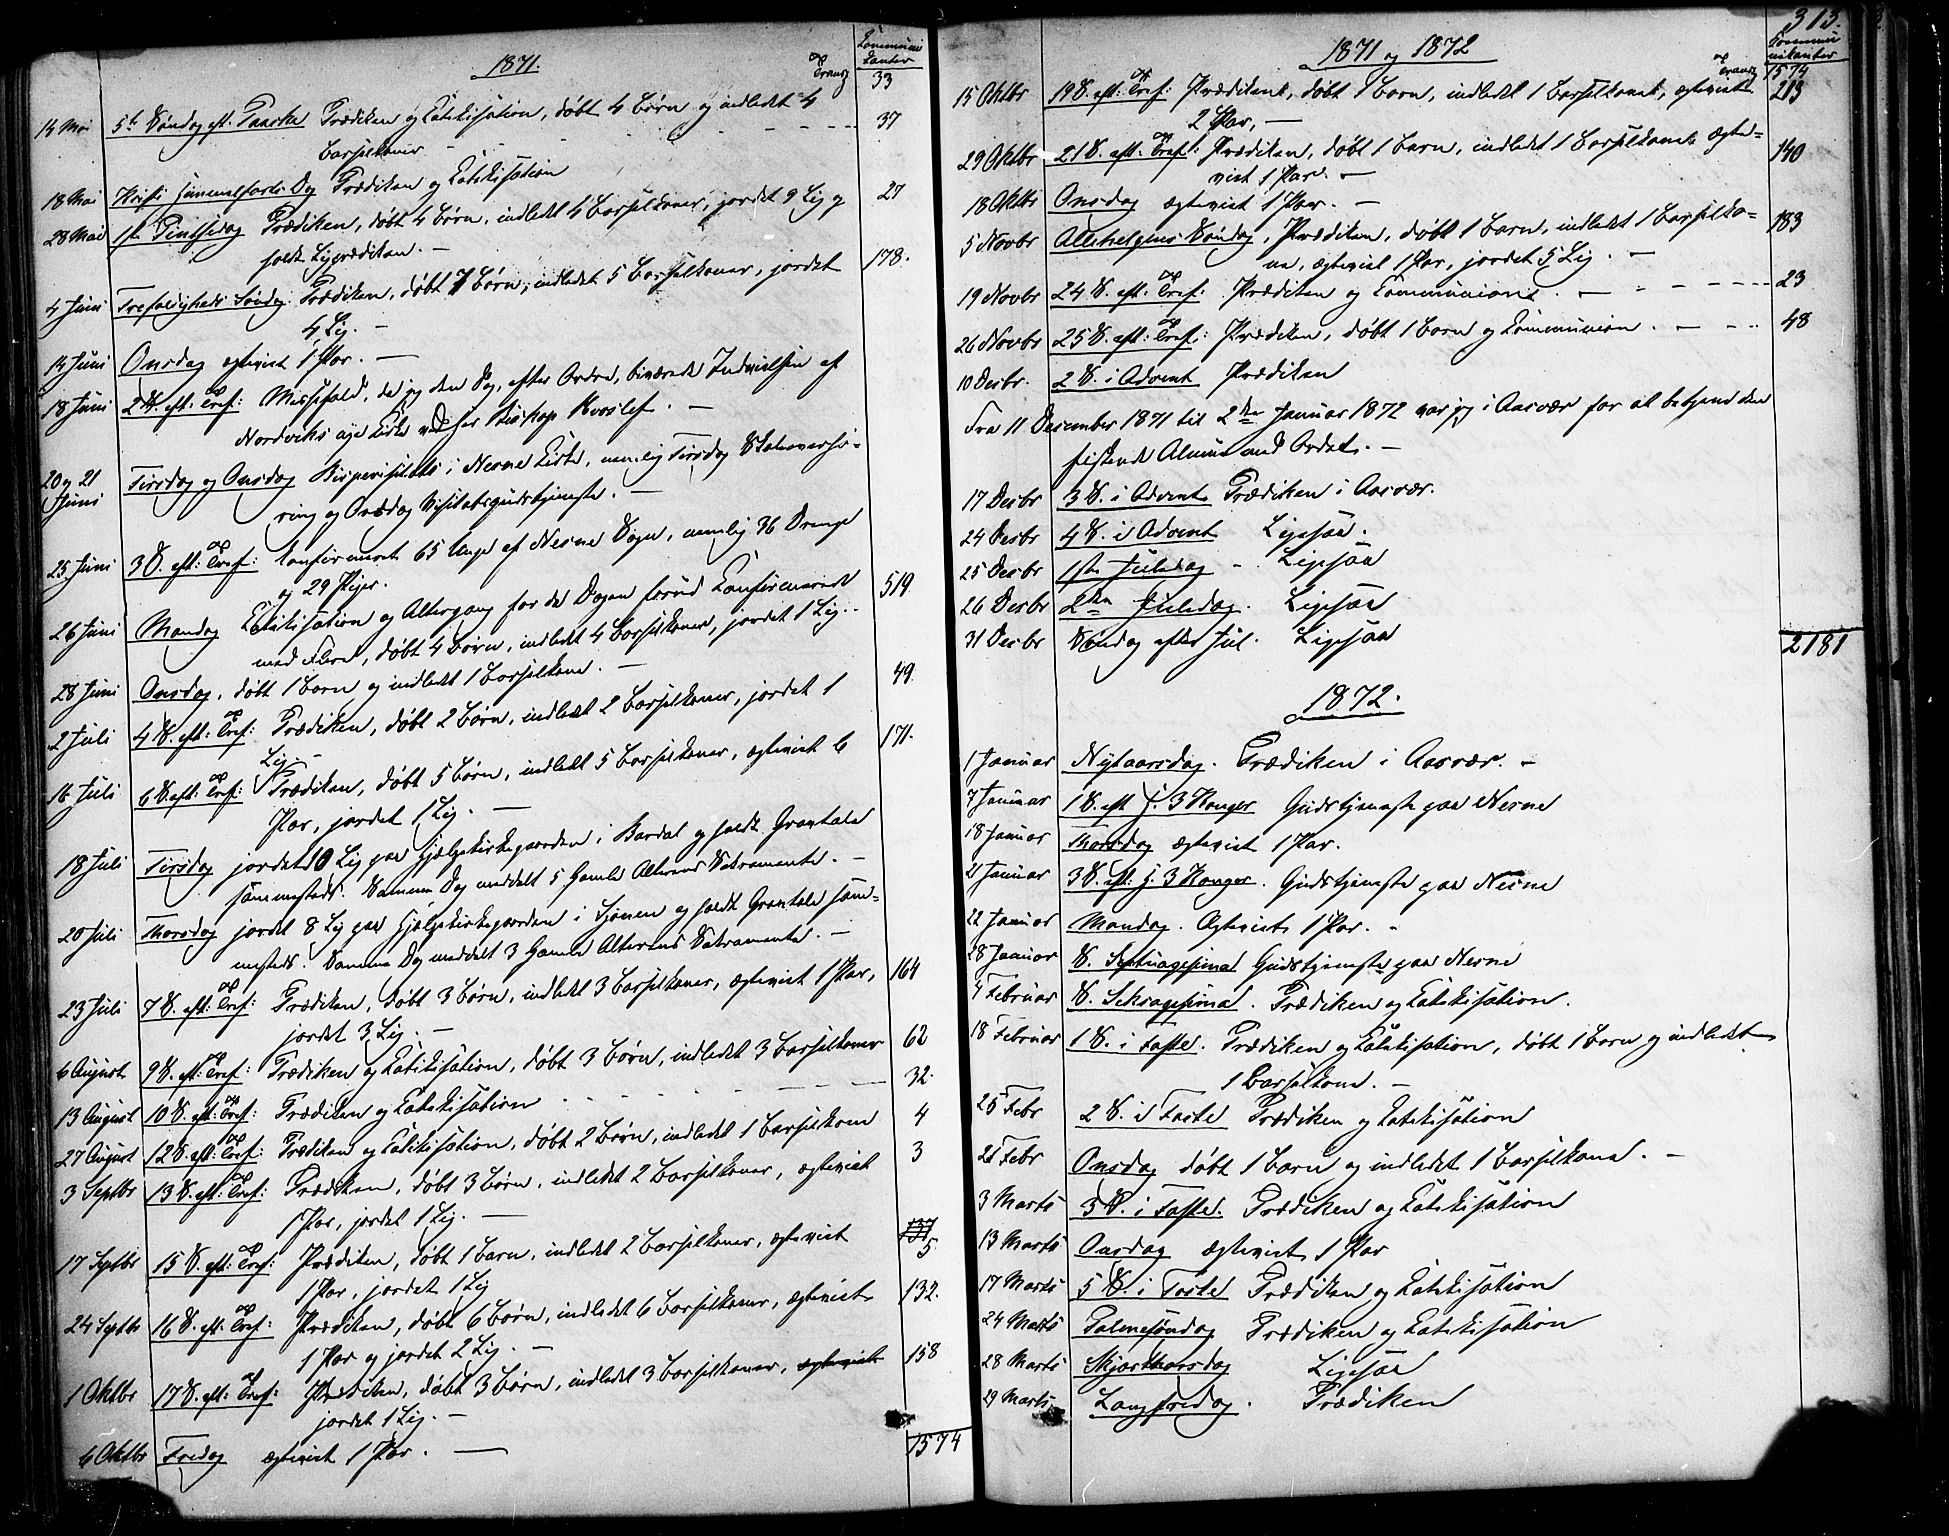 1871.
Communi
kanter
Transp 33
14 Mai 5te Søndag eft. Paaske Prædiken og Catekisation, døbt 4 Børn og indledet 4
Barselkoner - - - - 37
18 Mai Kristi Himmelfarts Dag Prædiken og Catekisation
28 Mai 1ste Pintsedag Prædiken, døbt 4 Børn, indledet 4 Barselkoner, jordet 9 Lig og 27
holdt Ligprædiken. —
4 Juni Trefoldigheds Søndag. Prædiken, døbt 7 Børn, indledet 5 Barselkoner, jordet 178.
4 Lig. —
14 Juni Onsdag ægteviet 1 Par. —
18 Juni 2 S. eft: Tref: Messefald, da jeg den Dag, efter Ordre, bivaanede Indvielsen af
Nordviks nye Kirke ved Hr Biskop Hvoslef. —
20 og 21
Juni Tirsdag og Onsdag Bispevisitats i Nesne Kirke, nemlig Tirsdag Skoleoverhø-
ring og Onsdag Visitatsgudstjeneste. —
25 Juni 3 S. eft: Tref: konfirmeret 65 Unge af Nesne Sogn, nemlig 36 Drenge
og 29 Piger.
26 Juni Mandag Catekisation og Altergang for de Dagen forud Konfirmerede 519.
med Flere, døbt 4 Børn, indledet 4 Barselkoner, jordet 1 Lig. -
28 Juni Onsdag, døbt 1 Barn og indledet 1 Barselkone. —
2 Juli 4 S. eft: Tref: Prædiken, døbt 2 Børn, indledet 2 Barselkoner, jordet 1 49.
Lig. -
16 Juli 6 S. eft: Tref: Prædiken, døbt 5 Børn, indledet 5 Barselkoner, ægteviet 6 171.
Par, jordet 1 Lig. —
18 Juli Tirsdag jordet 10 Lig paa Hjælpekirkegaarden i Bardal og holdt Gravtale
sammesteds. Samme Dag meddelt 5 Gamle Alterens Sakramente. —
20 Juli Thorsdag jordet 8 Lig paa Hjælpekirkegaarden i Sjonen og holdt Gravtale sam-
mesteds. Samme Dag meddelt 3 Gamle Alterens Sakramente. —
23 Juli 7 S. eft: Tref: Prædiken, døbt 3 Børn, indledet 3 Barselkoner, ægteviet 1 Par, 164
jordet 3 Lig. —
6 August 9 S. eft: Tref: Prædiken og Catekisation, døbt 3 Børn, indledet 3 Barselkoner 62
13 August 10 S. eft: Tref: Prædiken og Catekisation - - - - 32.
27 August 12 S. eft: Tref: Prædiken og Catekisation, døbt 2 Børn, indledet 1 Barselkone 4
3 Septbr 13 S. eft: Tref: Prædiken, døbt 3 Børn, indledet 2 Barselkoner, ægteviet 3
1 Par, jordet 1 Lig. —
17 Septbr 15 S. eft: Tref: Prædiken, døbt 1 Barn, indledet 2 Barselkoner, ægteviet 137 5
1 Par, jordet 1 Lig
24 Septbr 16 S. eft: Tref: Prædiken, døbt 6 Børn, indledet 6 Barselkoner, ægteviet 132.
1 Par og jordet 2 Lig. —
1 Oktbr 17 S. eft: Tref: Prædiken, døbt 3 Børn, indledet 3 Barselkoner, ægteviet 158
jordet 1 Lig. —
6 Oktbr Fredag ægteviet 1 Par. —
1574
313.
1871 og 1872
Commu
nikanter
Transp 1574
15 Oktbr 19 S. eft: Tref: Prædikent, døbt 1 Barn, indledet 1 Barselkone, ægteviet 213
2 Par, —
29 Oktbr 21 S. eft: Tref: Prædiken, døbt 1 Barn, indledet 1 Barselkone ægte= 140
viet 1 Par. —
18 Oktbr Onsdag ægteviet 1 Par. —
5 Novbr Allehelgens Søndag, Prædiken, døbt 1 Barn, indledet 1 Barselko= 183
ne, ægteviet 1 Par, jordet 5 Lig. —
19 Novbr 24 S. eft: Tref: Prædiken og Communion. — - - - 23
26 Novbr 25 S. eft: Tref: Prædiken, døbt 1 Barn og Communion. — - - 48
10 Desbr. 2 S. i Advent Prædiken
Fra 11 December 1871 til 2den Januar 1872 var jeg i Aasvær for at betjene den
fiskende Almue med Ordet. —
17 Desbr 3 S. i Advent Prædiken i Aasvær.
24 Desbr 4 S. i Advent Ligesaa.
25 Desbr 1ste Juledag - Ligesaa
26 Desbr 2den Juledag. Ligesaa
31 Desbr Søndag efter Jul. Ligesaa
2181
1872.
1 Januar Nytaarsdag. Prædiken i Aasvær. -
7 Januar 1 S. eft H. 3 Konger Gudstjeneste paa Nesne
18 Januar Thorsdag ægteviet 1 Par.
21 Januar 3 S. eft: H. 3 Konger. Gudstjeneste paa Nesne
22 Januar Mandag. Ægteviet 1 Par. -
28 Januar S. Septuagesima Gudstjeneste paa Nesne
4 Februar S. Seksagesima. Prædiken og Catekisation.
18 Februar 1 S. i Faste. Prædiken og Catekisation, døbt 1 Barn og indledet
1 Barselkone. —
25 Febr 2 S. i Faste Prædiken og Catekisation
28 Febr Onsdag døbt 1 Barn og indledet 1 Barselkone. —
3 Marts 3 S. i Faste. Prædiken og Catekisation
13 Marts Onsdag ægteviet 1 Par
17 Marts 5 S. i Faste Prædiken og Catekisation
24 Marts Palmesøndag Prædiken og Catekisation
28 Marts Skjærthorsdag Ligesaa
29 Marts Langfredag. Prædiken